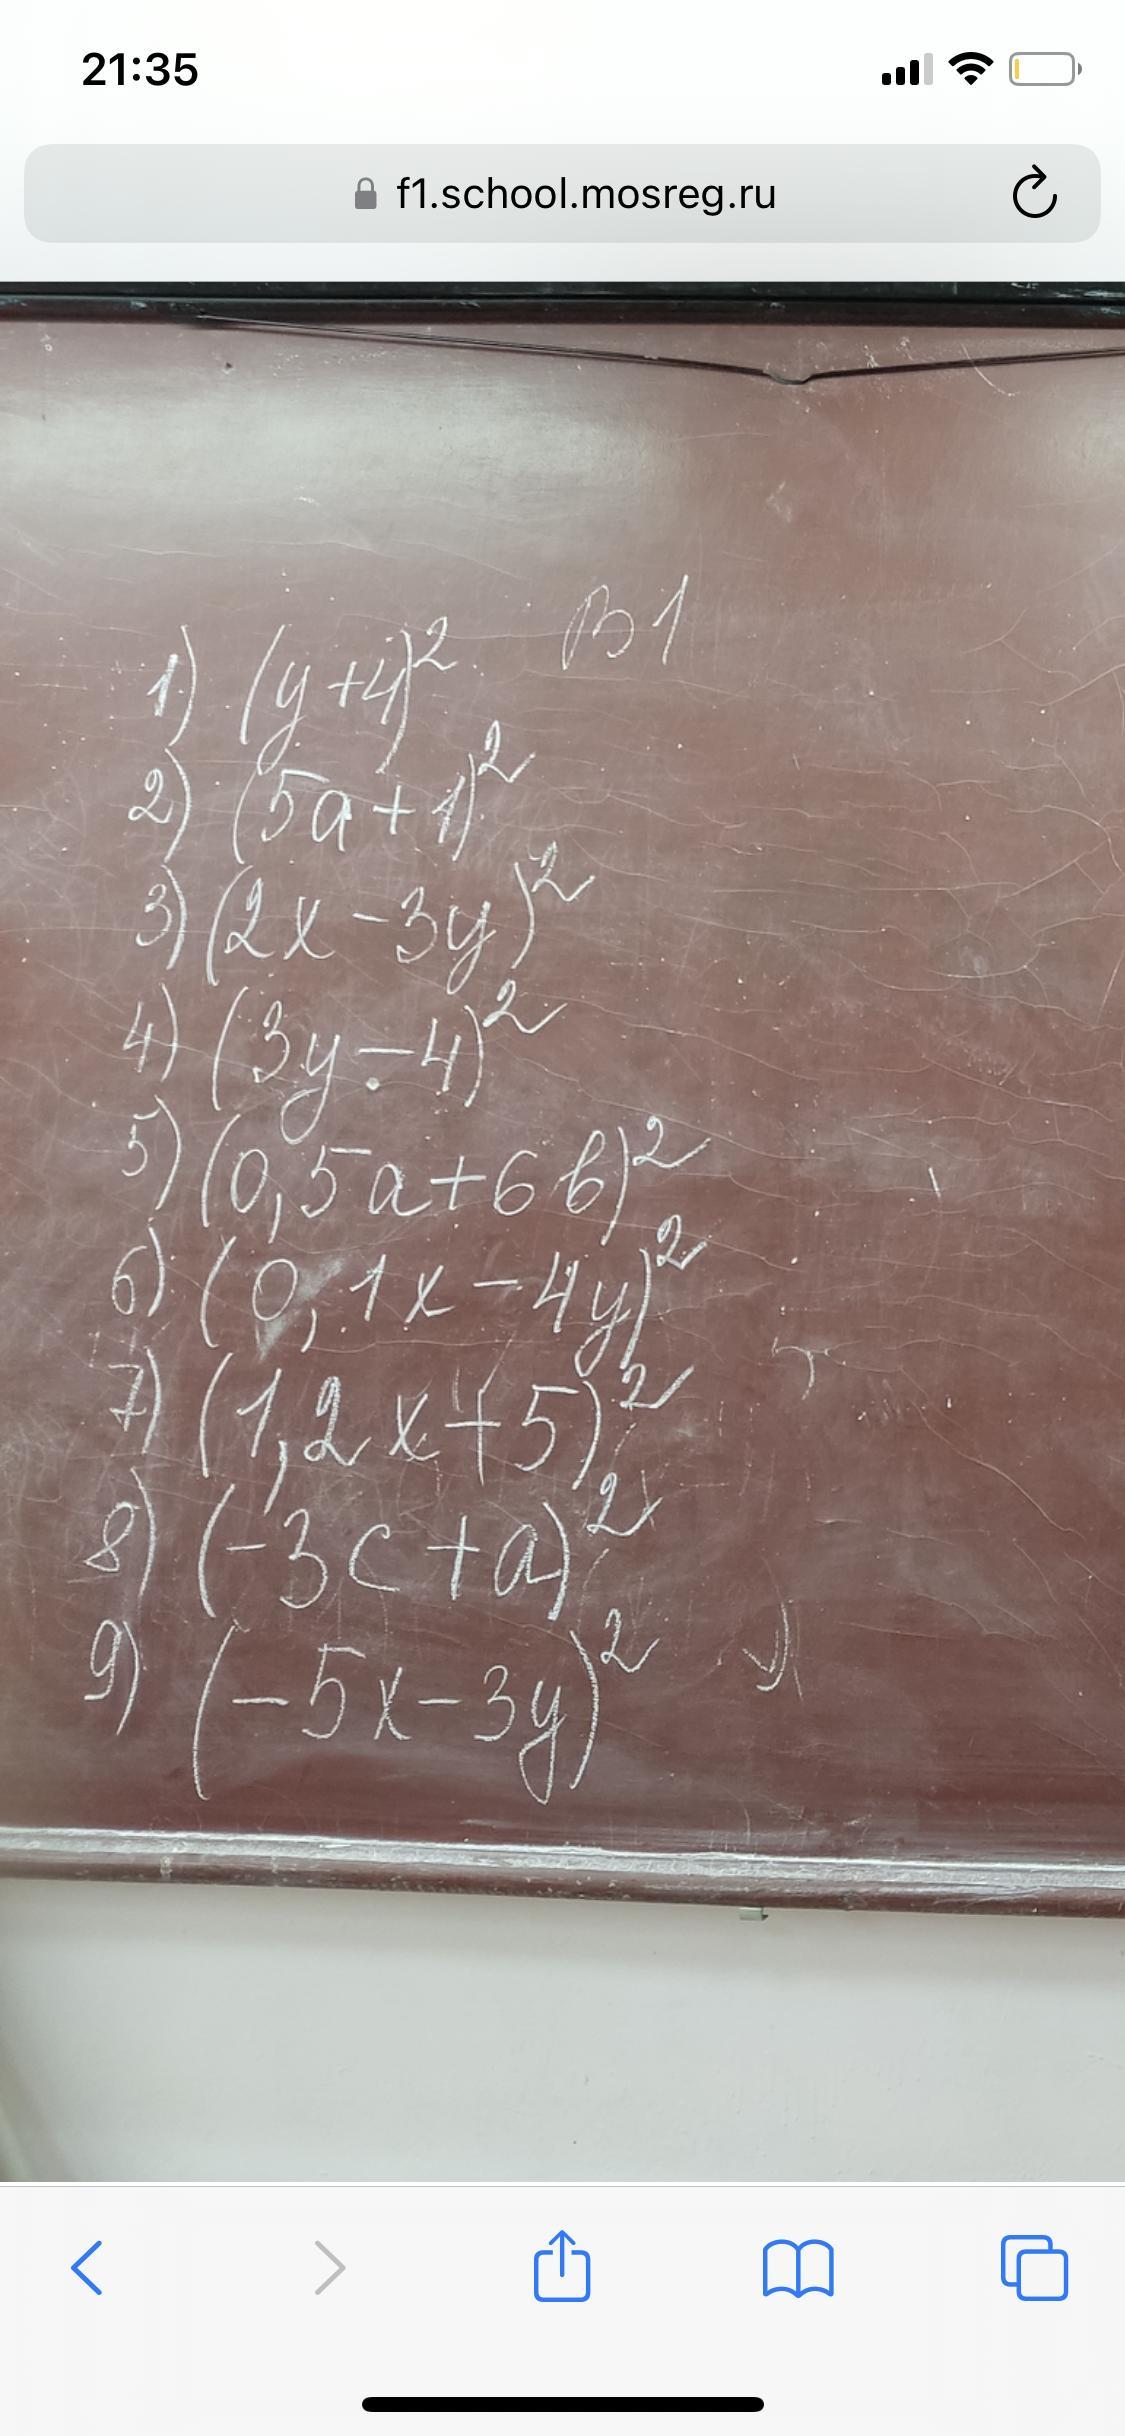 21:35
f1.school.mosreg.ru
В1
1) (y+4)²
2) (5a+1)²
3) (2x-3y)²
4) (3y-4)²
5) (0,5a+6b)²
6) (0,1x-4y)²
7) (1,2x+5)²
8) (-3c+a)²
9) (-5x-3y)²